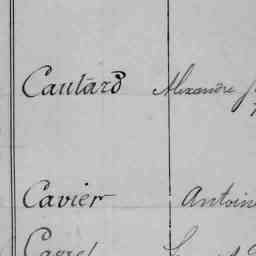 Cautard Alexandre
Cavier Antoin